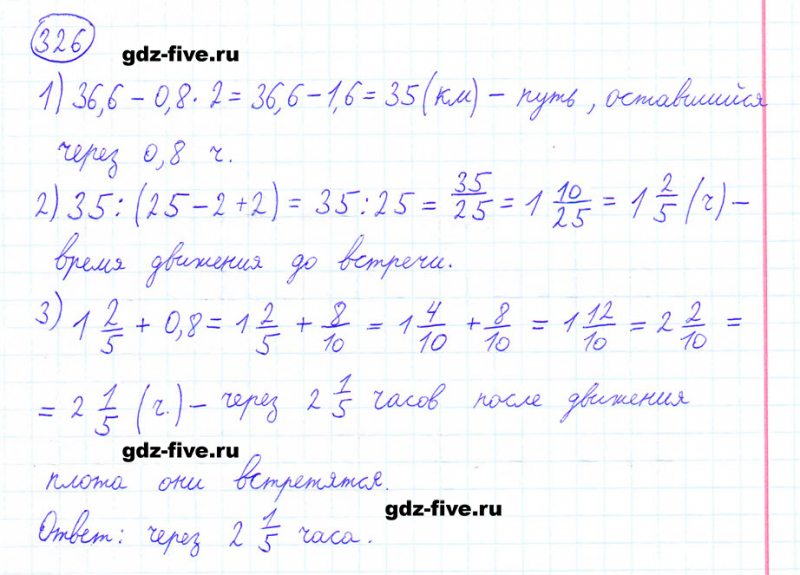 326
gdz-five.ru
1) 36,6 – 0,8 · 2 = 36,6 – 1,6 = 35 (км) – путь, оставшийся
через 0,8 ч.
2) 35 : (25 – 2 + 2) = 35 : 25 = 35/25 = 1 10/25 = 1 2/5 (ч) –
время движения до встречи.
3) 1 2/5 + 0,8 = 1 2/5 + 8/10 = 1 4/10 + 8/10 = 1 12/10 = 2 2/10 =
= 2 1/5 (ч.) – через 2 1/5 часов после движения
gdz-five.ru
плота они встретятся.
gdz-five.ru
Ответ: через 2 1/5 часа.